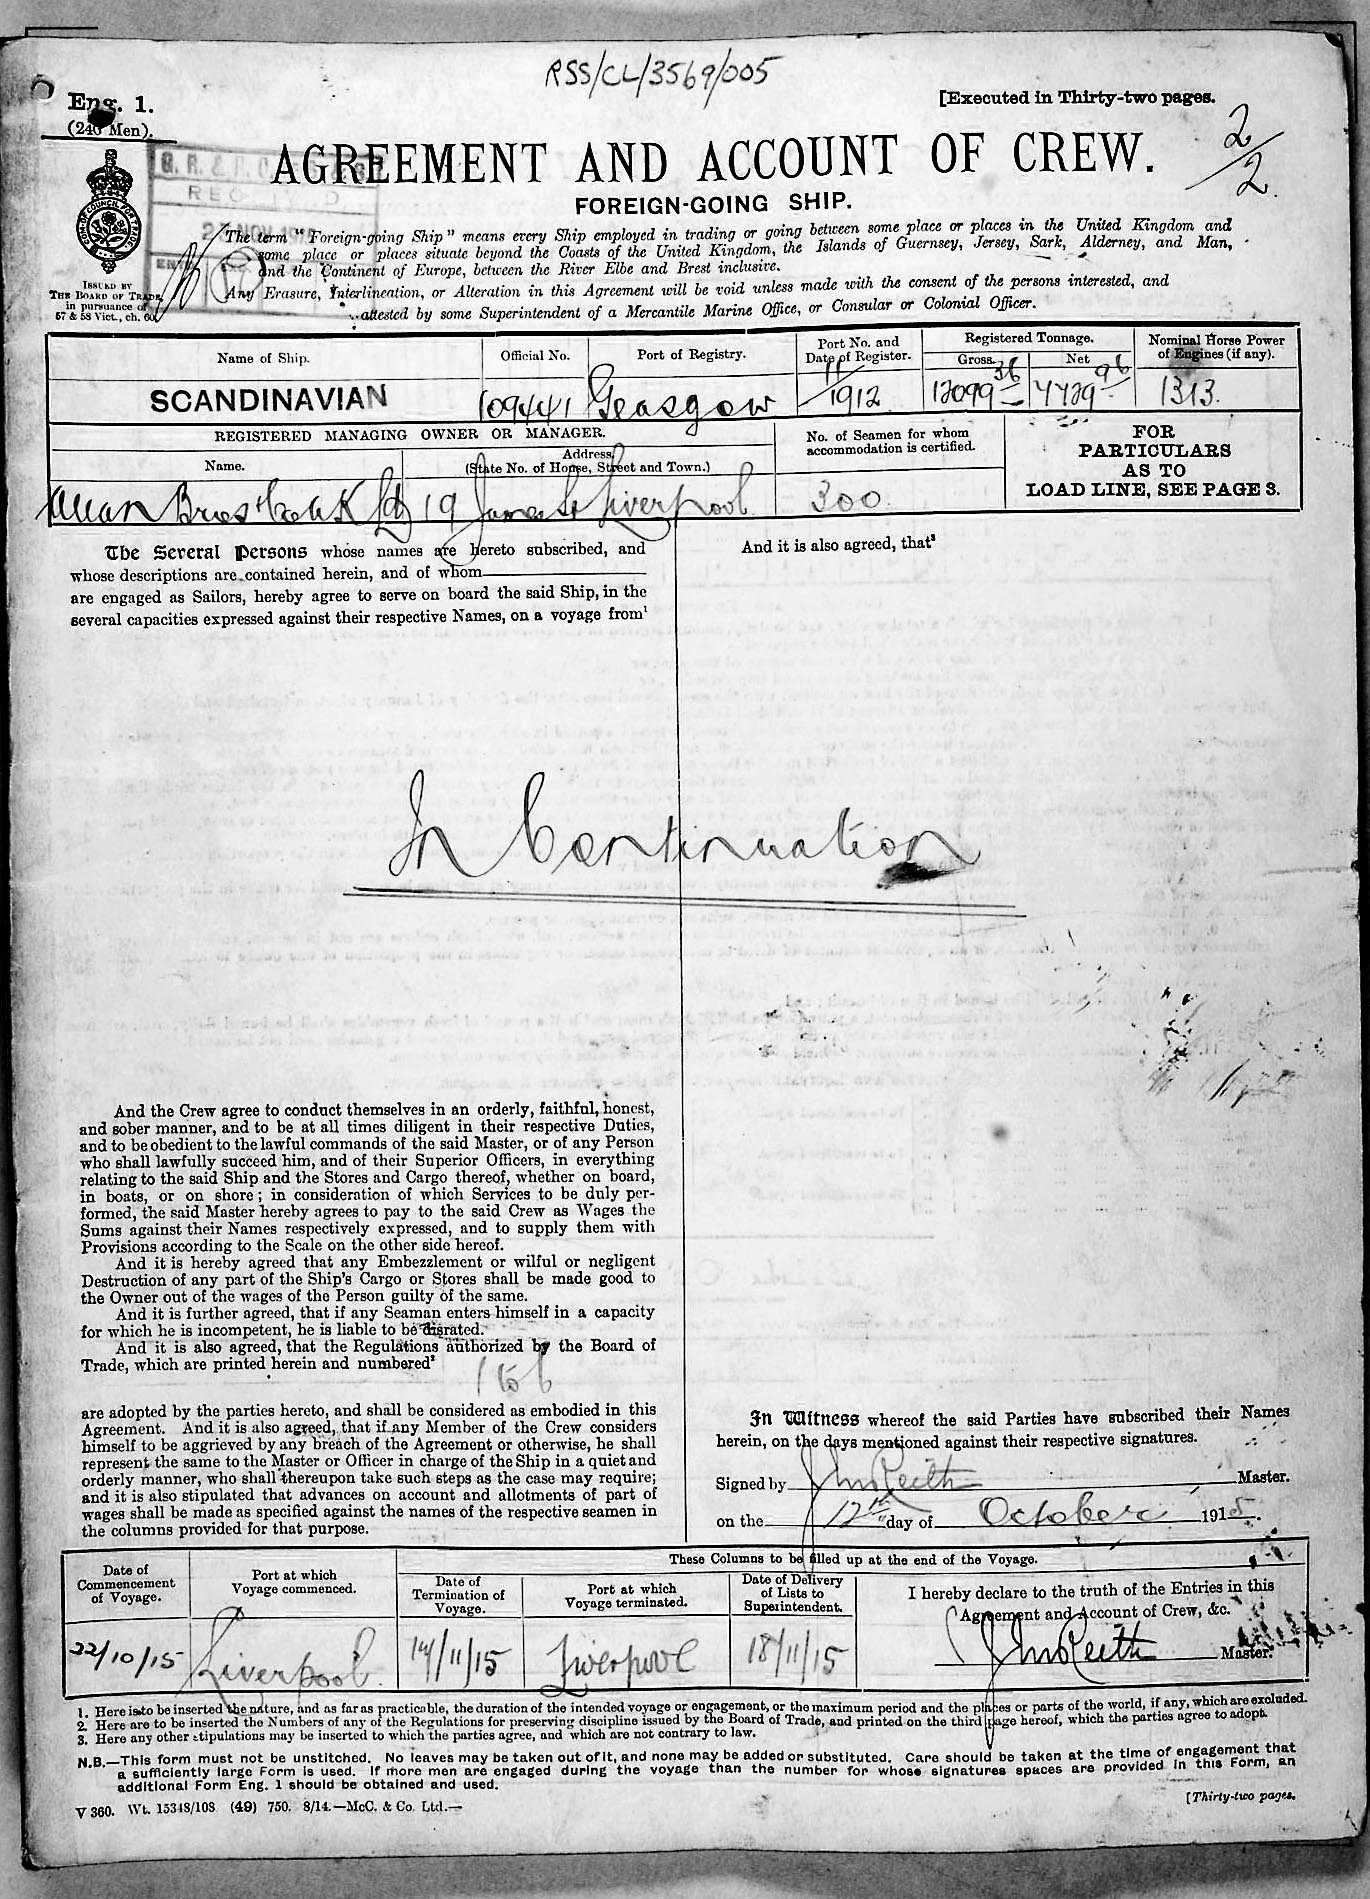 RSS/CL/3569/005
Eng. 1.
(240 Men).
[Executed in Thirty-two pages.
2/2
AGREEMENT AND ACCOUNT OF CREW.
FOREIGN-GOING SHIP.
The term "Foreign-going Ship" means every Ship employed in trading or going between some place or places in the United Kingdom and
some place or places situate beyond the Coasts of the United Kingdom, the Islands of Guernsey, Jersey, Sark, Alderney, and Man,
and the Continent of Europe, between the River Elbe and Brest inclusive.
Any Erasure, Interlineation, or Alteration in this Agreement will be void unless made with the consent of the persons interested, and
attested by some Superintendent of a Mercantile Marine Office, or Consular or Colonial Officer.
ISSUED BY
THE BOARD OF TRADE
in pursuance of
57 & 58 Vict., ch. 60.
Name of Ship.
Official No.
Port of Registry.
Port No. and
Date of Register.
Registered Tonnage.
Gross.
Net
Nominal Horse Power
of Engines (if any).
SCANDINAVIAN
109441
Glasgow
11/1912
12099 36
7729 96
1313.
REGISTERED MANAGING OWNER OR MANAGER.
Name.
Address
(State No. of House, Street and Town.)
No. of Seamen for whom
accommodation is certified.
FOR
PARTICULARS
AS TO
LOAD LINE, SEE PAGE 3.
Allan Bros & Co U.K Ld
19 James St Liverpool
300
The Several Persons whose names are hereto subscribed, and
whose descriptions are contained herein, and of whom
are engaged as Sailors, hereby agree to serve on board the said Ship, in the
several capacities expressed against their respective Names, on a voyage from¹
And it is also agreed, that³
In Continuation
And the Crew agree to conduct themselves in an orderly, faithful, honest,
and sober manner, and to be at all times diligent in their respective Duties,
and to be obedient to the lawful commands of the said Master, or of any Person
who shall lawfully succeed him, and of their Superior Officers, in everything
relating to the said Ship and the Stores and Cargo thereof, whether on board,
in boats, or on shore; in consideration of which Services to be duly per-
formed, the said Master hereby agrees to pay to the said Crew as Wages the
Sums against their Names respectively expressed, and to supply them with
Provisions according to the Scale on the other side hereof.
And it is hereby agreed that any Embezzlement or wilful or negligent
Destruction of any part of the Ship's Cargo or Stores shall be made good to
the Owner out of the wages of the Person guilty of the same.
And it is further agreed, that if any Seaman enters himself in a capacity
for which he is incompetent, he is liable to be disrated.
And it is also agreed, that the Regulations authorized by the Board of
Trade, which are printed herein and numbered²
1 to 6
are adopted by the parties hereto, and shall be considered as embodied in this
Agreement. And it is also agreed, that if any Member of the Crew considers
himself to be aggrieved by any breach of the Agreement or otherwise, he shall
represent the same to the Master or Officer in charge of the Ship in a quiet and
orderly manner, who shall thereupon take such steps as the case may require;
and it is also stipulated that advances on account and allotments of part of
wages shall be made as specified against the names of the respective seamen in
the columns provided for that purpose.
In Witness whereof the said Parties have subscribed their Names
herein, on the days mentioned against their respective signatures.
Signed by Master.
on the 12th day of October 1915.
Date of
Commencement
of Voyage.
Port at which
Voyage commenced.
These Columns to be filled up at the end of the Voyage.
Date of
Termination of
Voyage.
Port at which
Voyage terminated.
Date of Delivery
of Lists to
Superintendent.
I hereby declare to the truth of the Entries in this
Agreement and Account of Crew, &c.
22/10/15
Liverpool.
14/11/15
Liverpool
18/11/15
Master.
1. Here is to be inserted the nature, and as far as practicable, the duration of the intended voyage or engagement, or the maximum period and the places or parts of the world, if any, which are excluded.
2. Here are to be inserted the Numbers of any of the Regulations for preserving discipline issued by the Board of Trade, and printed on the third page hereof, which the parties agree to adopt.
3. Here any other stipulations may be inserted to which the parties agree, and which are not contrary to law.
N.B.—This form must not be unstitched. No leaves may be taken out of it, and none may be added or substituted. Care should be taken at the time of engagement that
a sufficiently large Form is used. If more men are engaged during the voyage than the number for whose signatures spaces are provided in this Form, an
additional Form Eng. 1 should be obtained and used.
V 360. Wt. 15348/108 (49) 750. 8/14.—McC. & Co. Ltd.—
[Thirty-two pages.